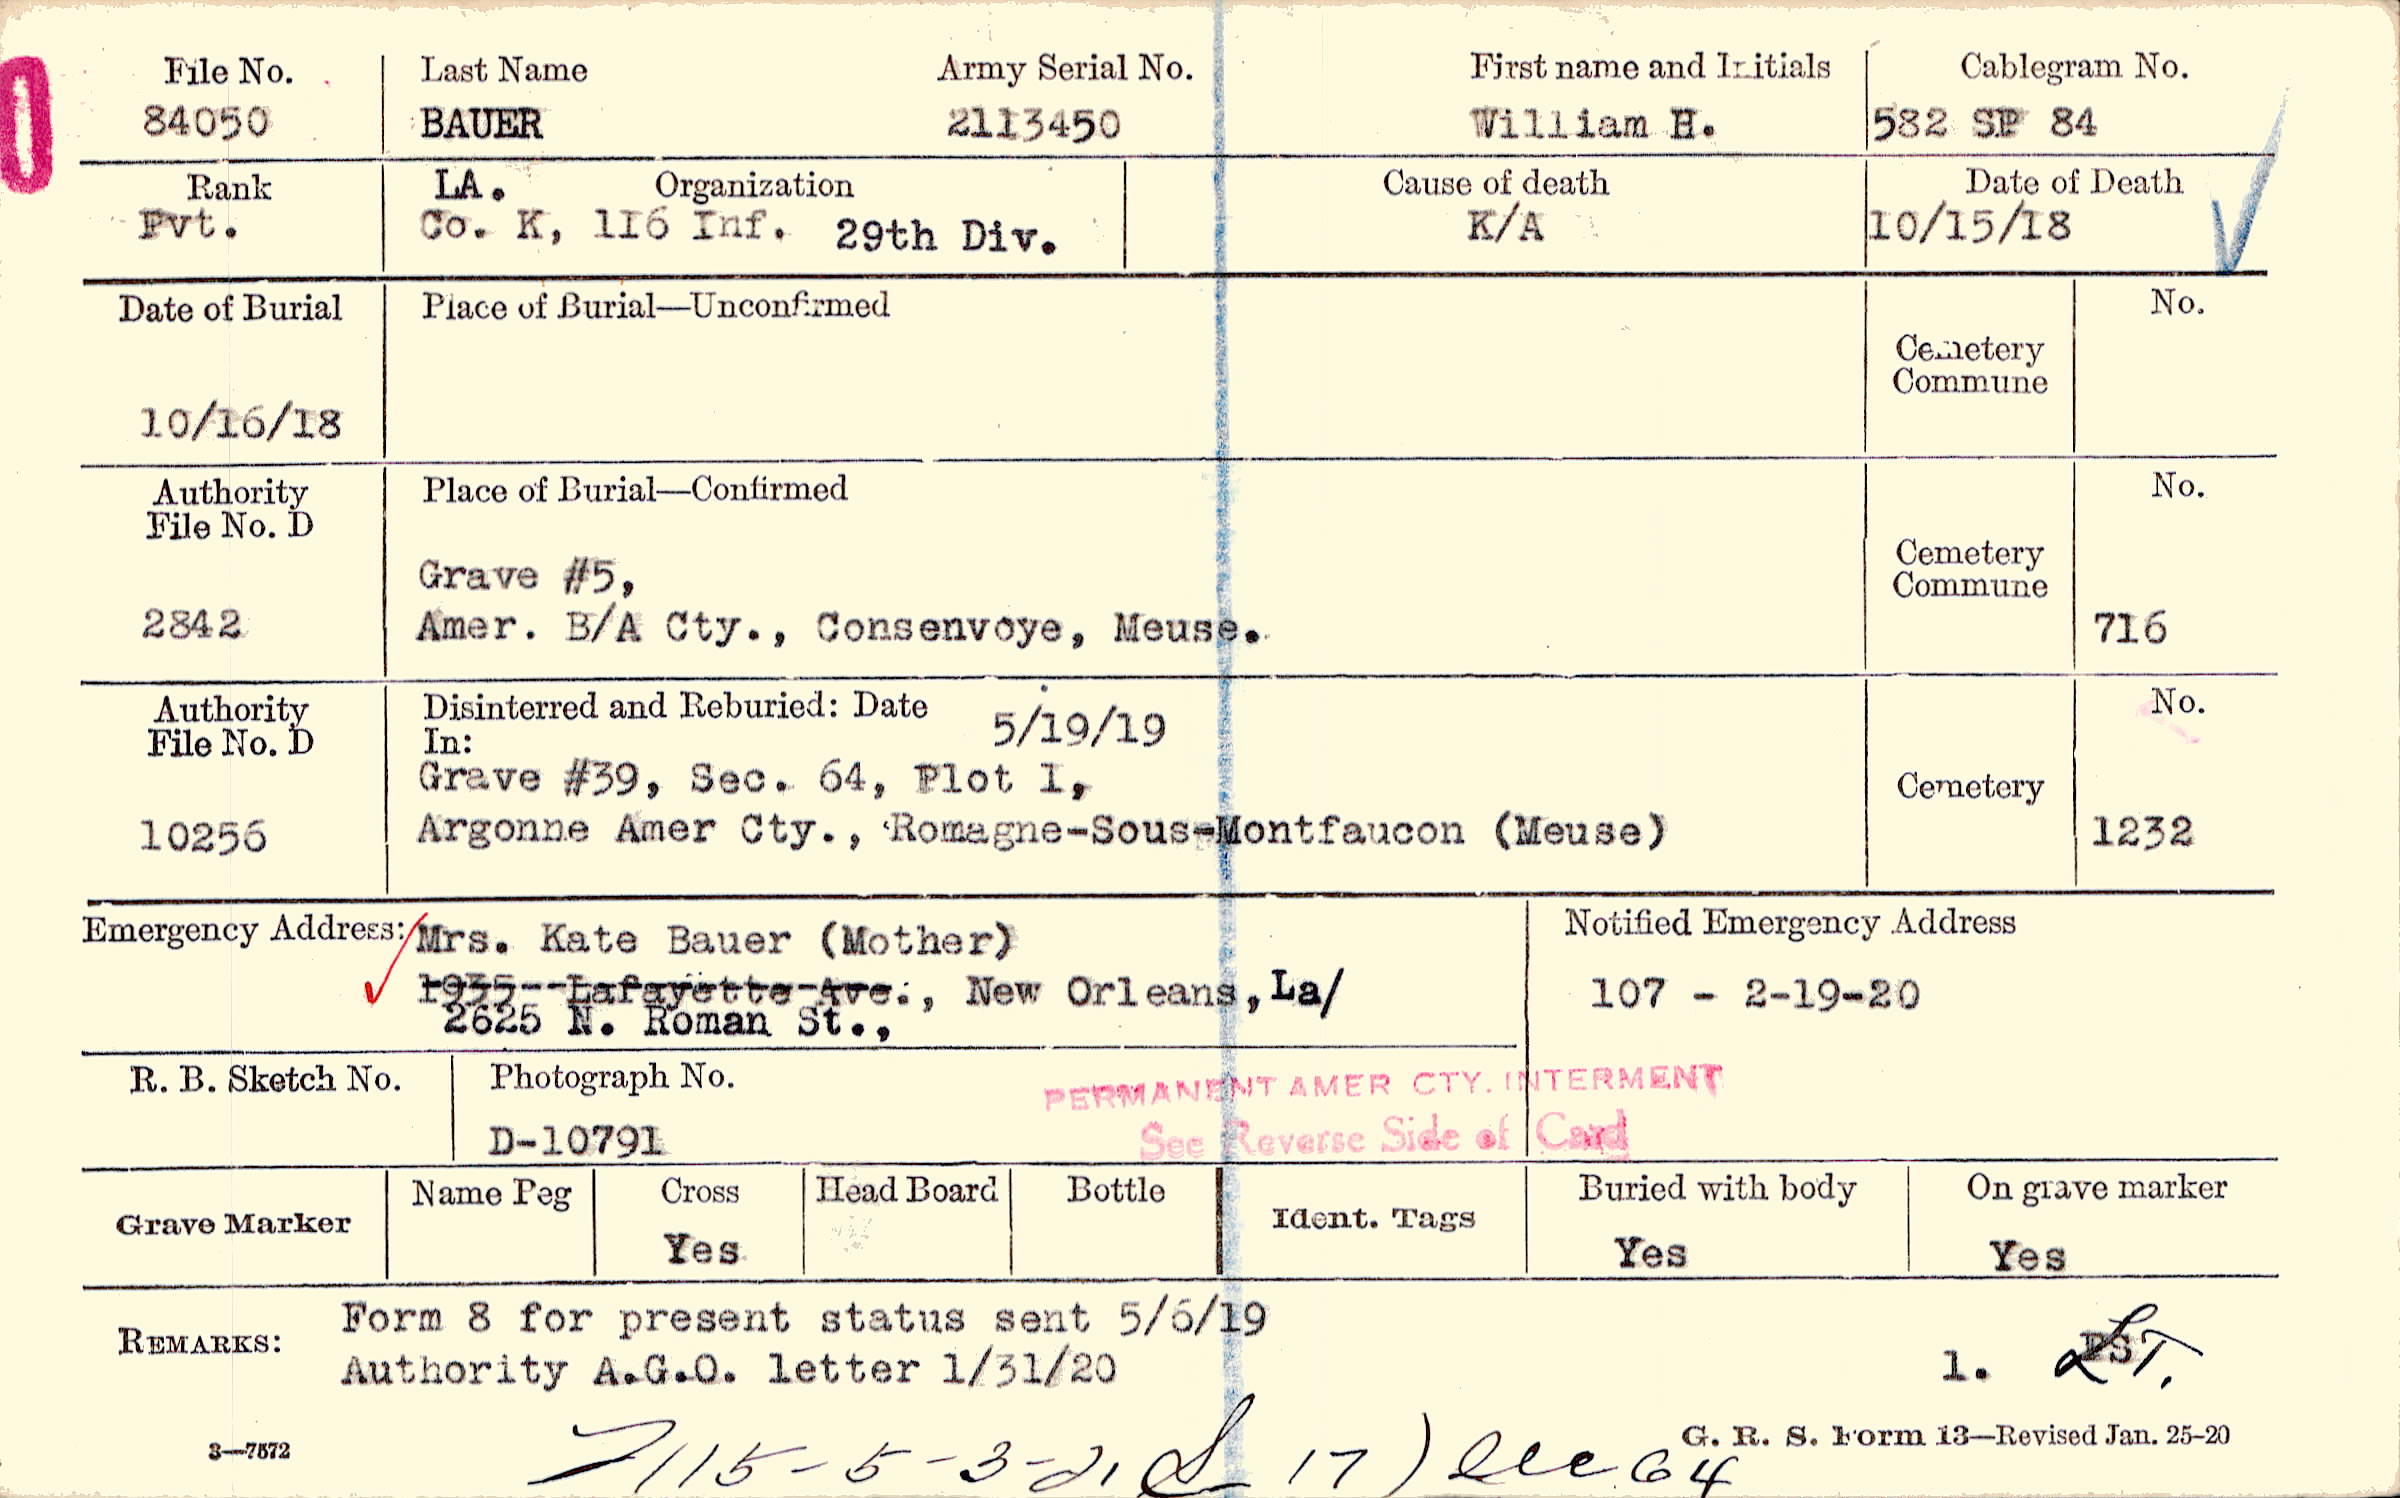 File No. Last Name Army Serial No. First name and Initials Cablegram No.
84050 BAUER 2113450 William H. 582 SP 84
Rank LA. Organization Cause of death Date of Death
Pvt. Co. K, 116 Inf. 29th Div. K/A 10/15/18
Date of Burial Place of Burial—Unconfirmed No.
Cemetery
Commune
10/16/18
Authority Place of Burial—Confirmed No.
File No. D
Cemetery
Grave #5, Commune
2842 Amer. B/A Cty., Consenvoye, Meuse. 716
Authority Disinterred and Reburied: Date 5/19/19 No.
File No. D In:
Grave #39, Sec. 64, Plot 1, Cemetery
10256 Argonne Amer Cty., Romagne-Sous-Montfaucon (Meuse) 1232
Emergency Address: Mrs. Kate Bauer (Mother) Notified Emergency Address
1935--Lafayette-Ave., New Orleans, La/ 107 - 2-19-20
2625 N. Roman St.,
R. B. Sketch No. Photograph No. PERMANENT AMER CTY. INTERMENT
D-10791 See Reverse Side of Card
Grave Marker Name Peg Cross Head Board Bottle Ident. Tags Buried with body On grave marker
Yes Yes Yes
REMARKS: Form 8 for present status sent 5/6/19
Authority A.G.O. letter 1/31/20 1.
3—7572 G. R. S. Form 13—Revised Jan. 25-20